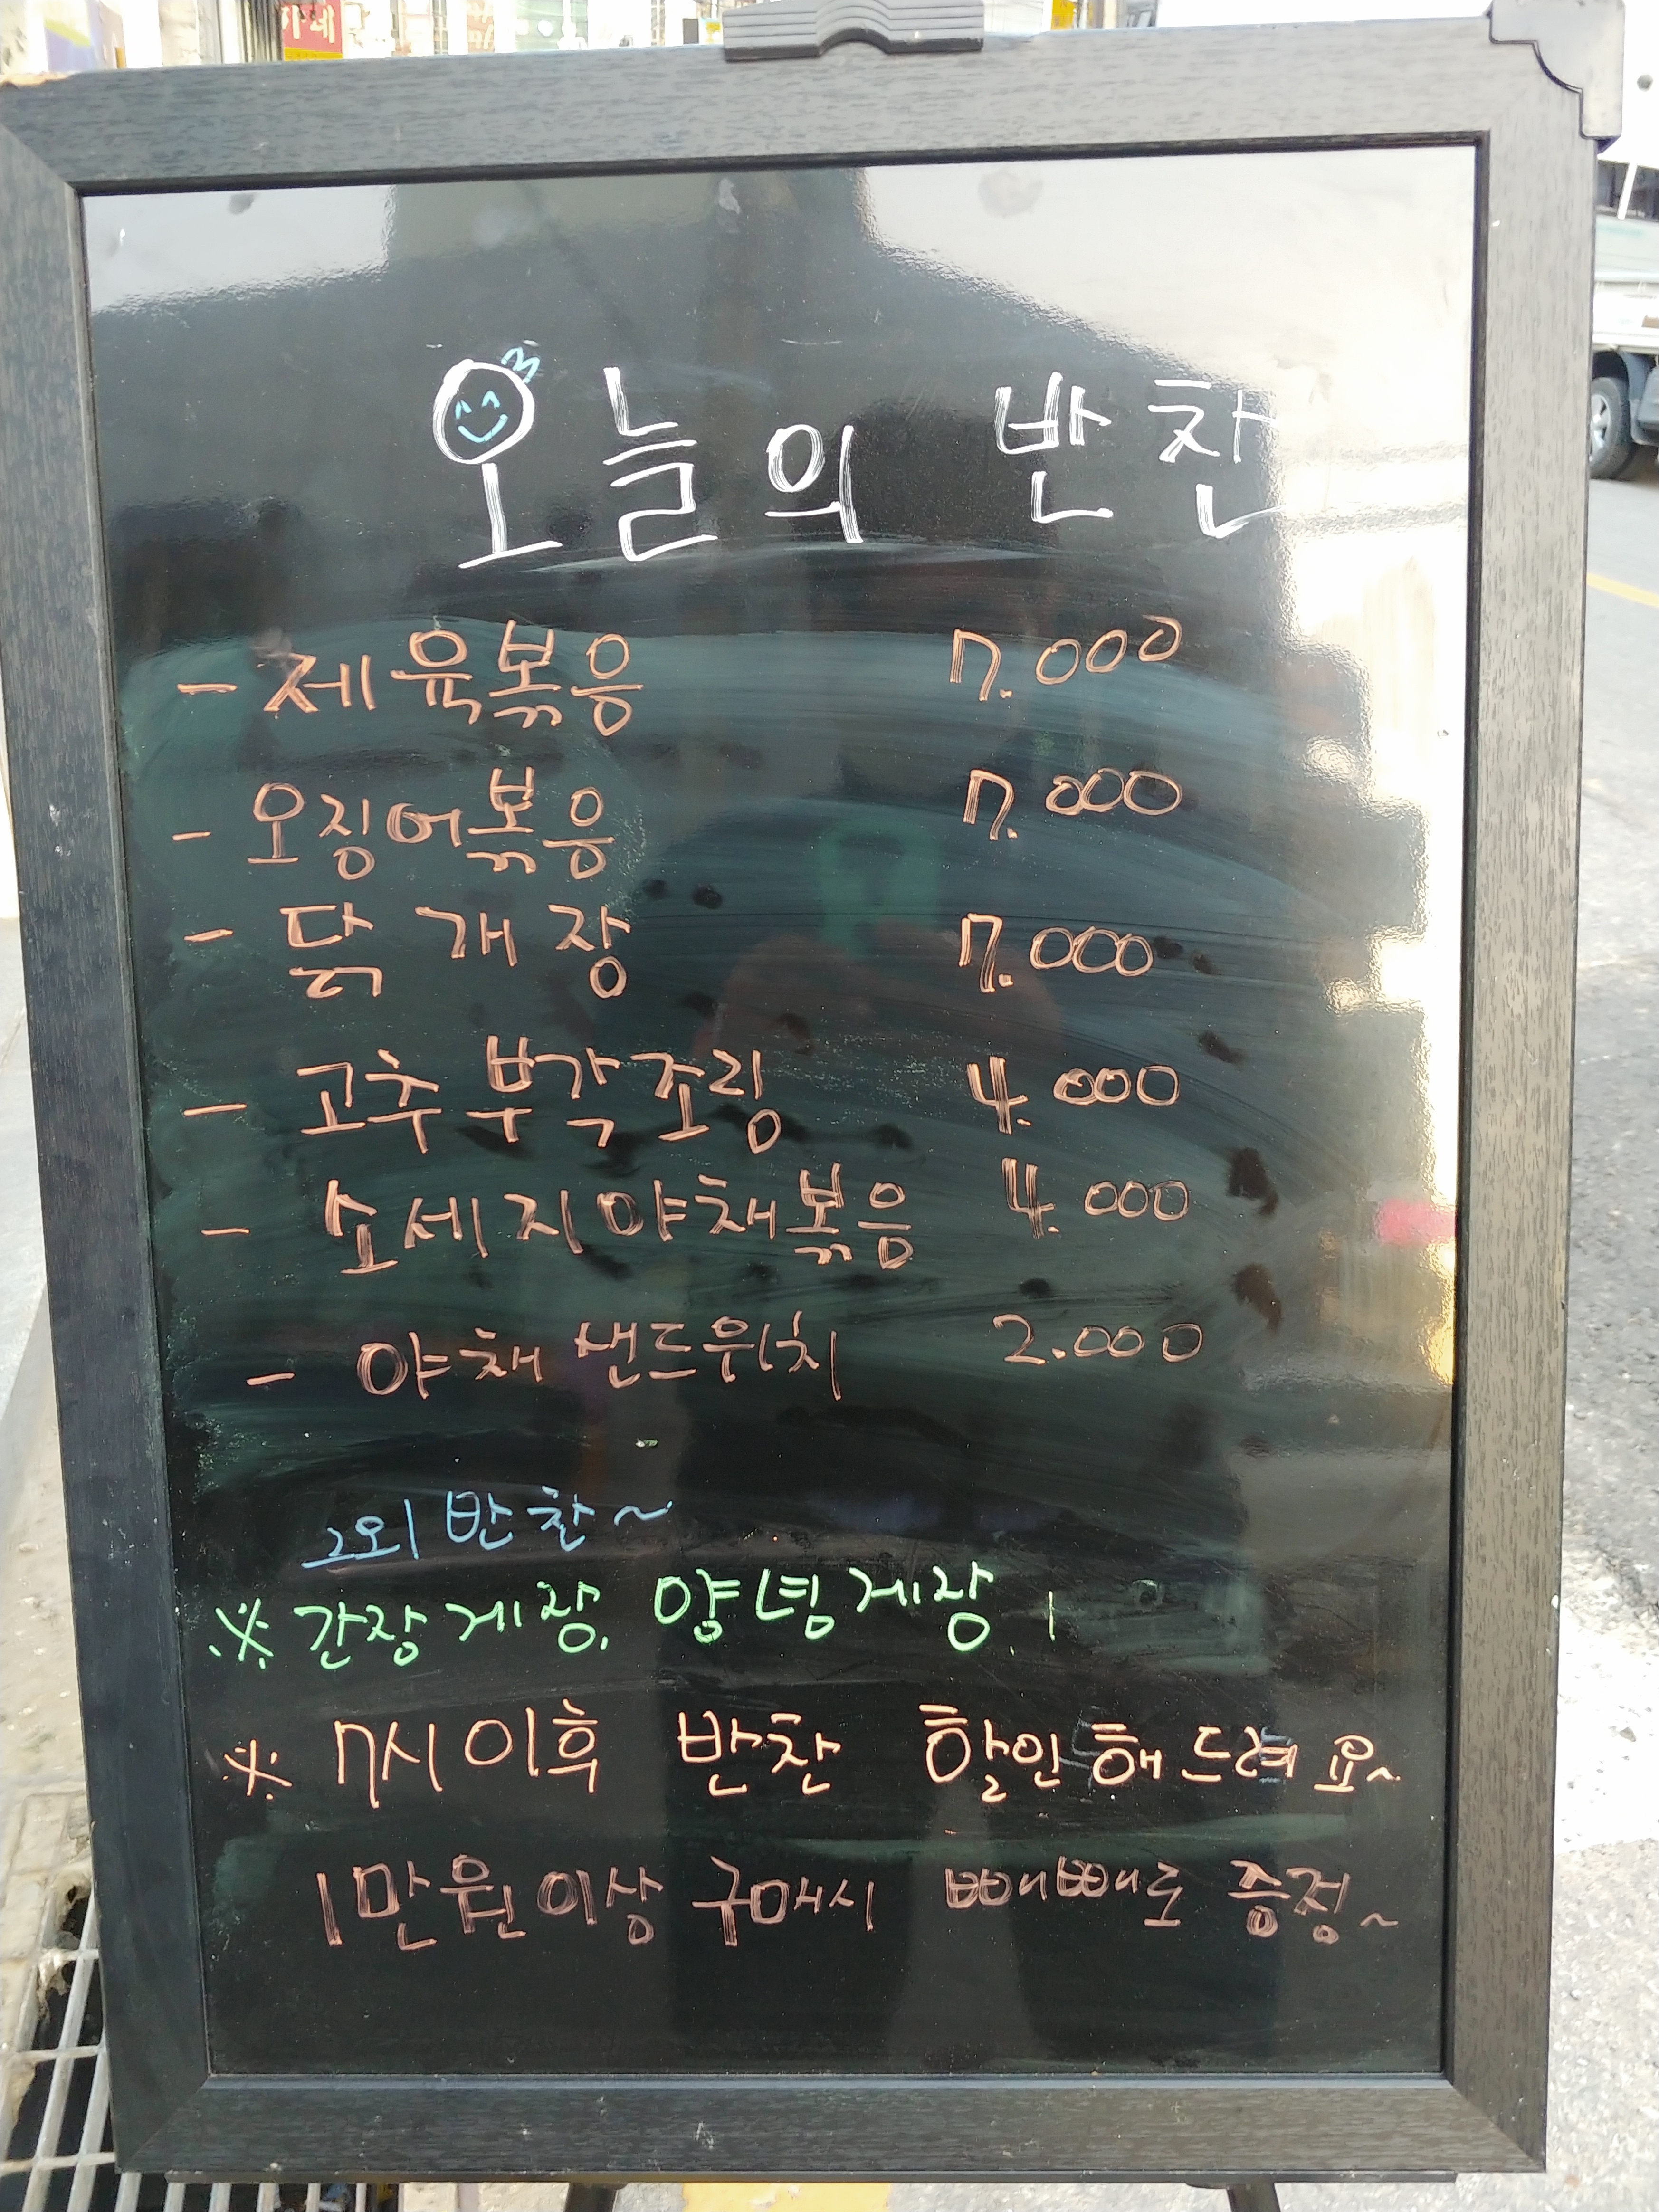 오늘의 반찬
- 제육볶음 7.000
- 오징어볶음 7.000
- 닭개장 7.000
- 고추부각조림 4.000
- 소세지야채볶음 4.000
- 야채 샌드위치 2.000
그외 반찬~
※ 간장게장, 양념게장,
※ 7시이후 반찬 할인해드려요~
1만원이상 구매시 빼빼로 증정~